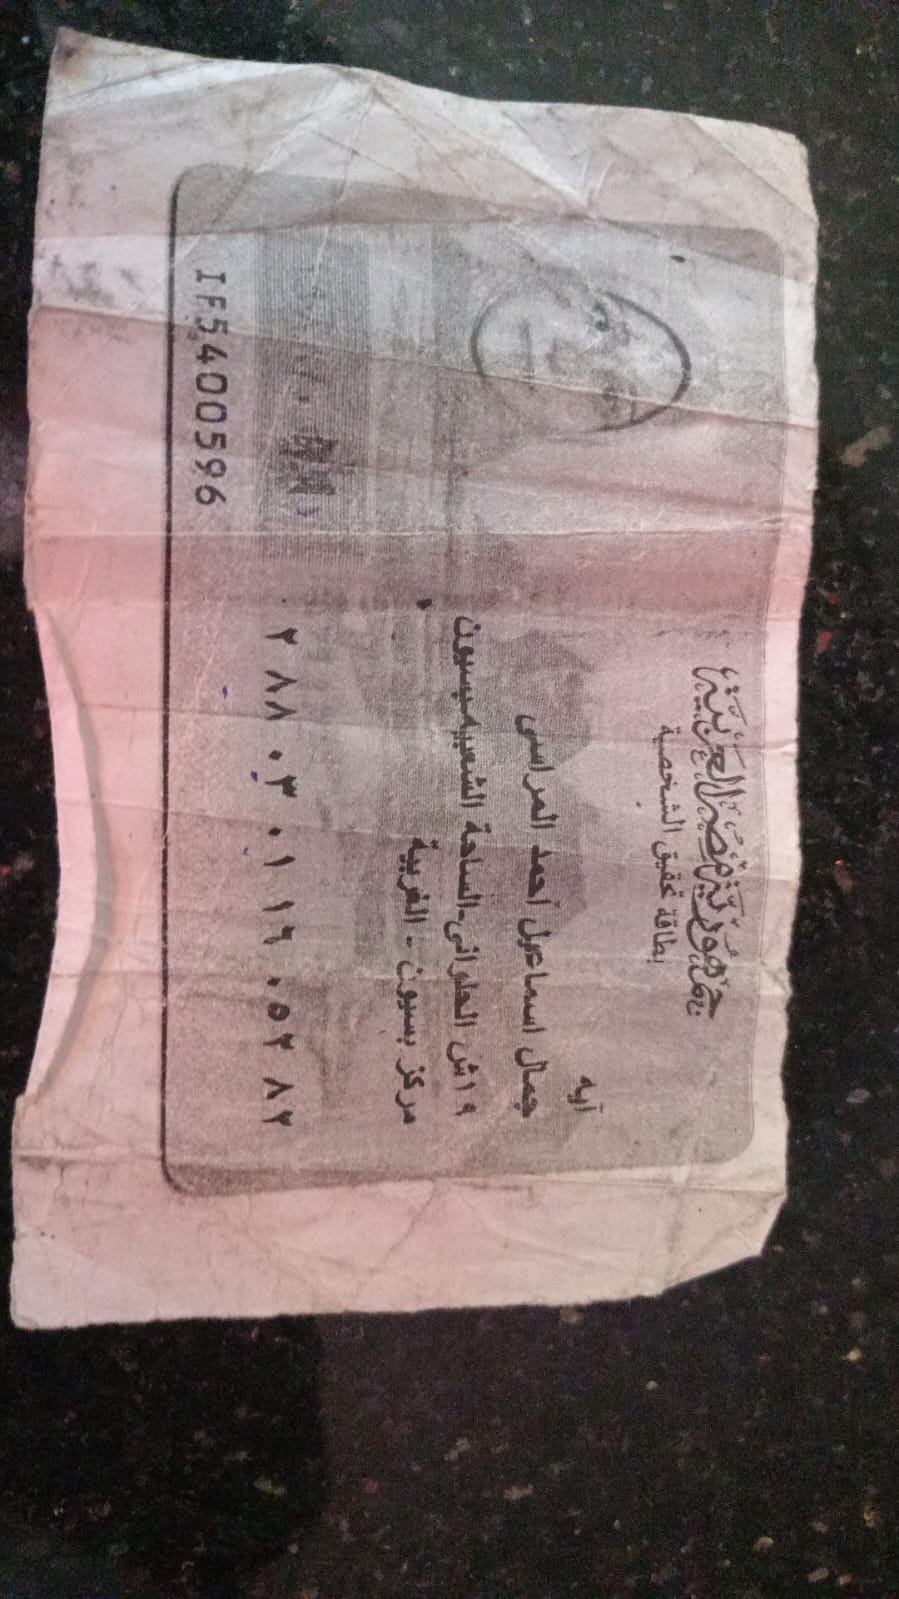 جمهورية مصر العربية
بطاقة تحقيق الشخصية
آيه
جمال اسماعيل أحمد المراسى
١٩ش الحلوانى-الساحة الشعبيه-بسيون
مركز بسيون - الغربية
٢٨٨٠٣٠١١٦٠٥٢٨٢
IF5400596